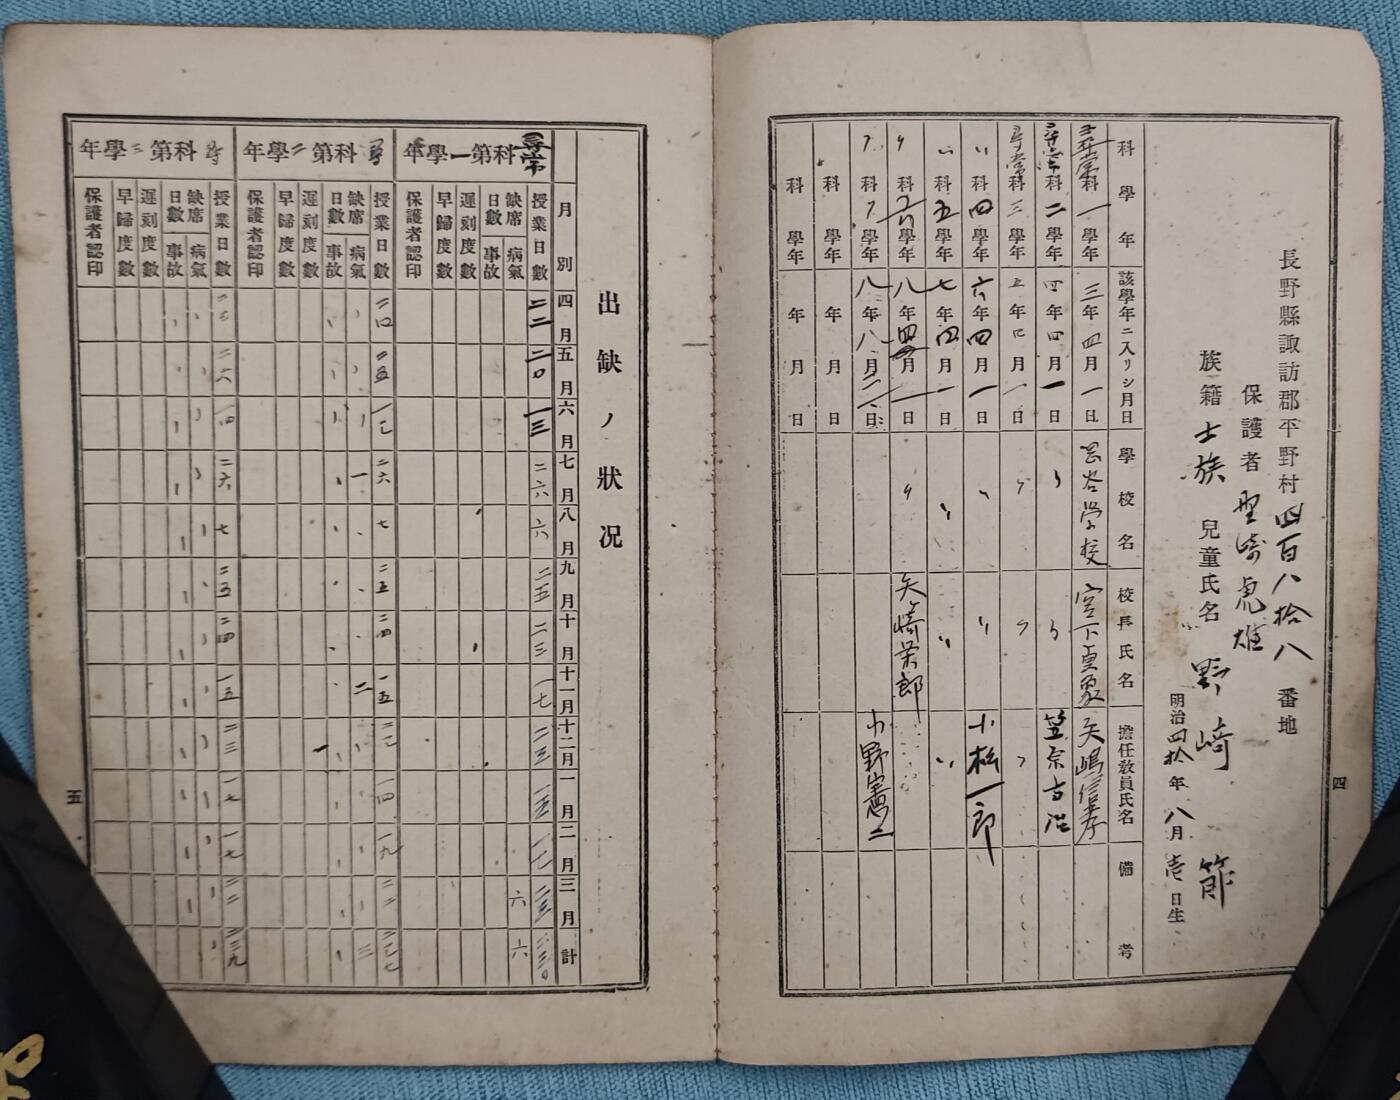 長野縣諏訪郡平野村四百八拾八番地
保護者 野崎虎雄
族籍 士族 兒童氏名 野崎節
明治四拾年八月壱日生
科學年 該學年ニ入リシ月日 學校名 校長氏名 擔任教員氏名 備考
尋常科一學年 三年四月一日 岡谷学校
尋常科二學年 四年四月一日 〃 〃 笠原吉治
尋常科三學年 五年四月一日 〃 〃 〃
〃科四學年 六年四月一日 〃 〃 小松一郎
〃科五學年 七年四月一日 〃 〃 〃
〃科六學年 八年四月一日 〃 矢崎栄郎
〃科〃學年 八年八月二日 小野憲二
科學年 年月日
科學年 年月日
四
出缺ノ狀況
月別 四月 五月 六月 七月 八月 九月 十月 十一月 十二月 一月 二月 三月 計
尋常科第一學年
授業日數 二二 二〇 一三 二六 六 二五 二三 一七 二三 一五 一七 二三 二三〇
缺席日數 病氣 六 六
事故
遲刻度數
早歸度數
保護者認印
尋科第二學年
授業日數 二四 二五 一七 二六 七 二五 二四 一五 二二 一四 一九 二二 二三七
缺席日數 病氣 一 二 三
事故
遲刻度數
早歸度數
保護者認印
尋科第三學年
授業日數 二三 二六 一四 二六 七 二五 二四 一五 二三 一七 一七 二二 二三九
缺席日數 病氣
事故
遲刻度數
早歸度數
保護者認印
五